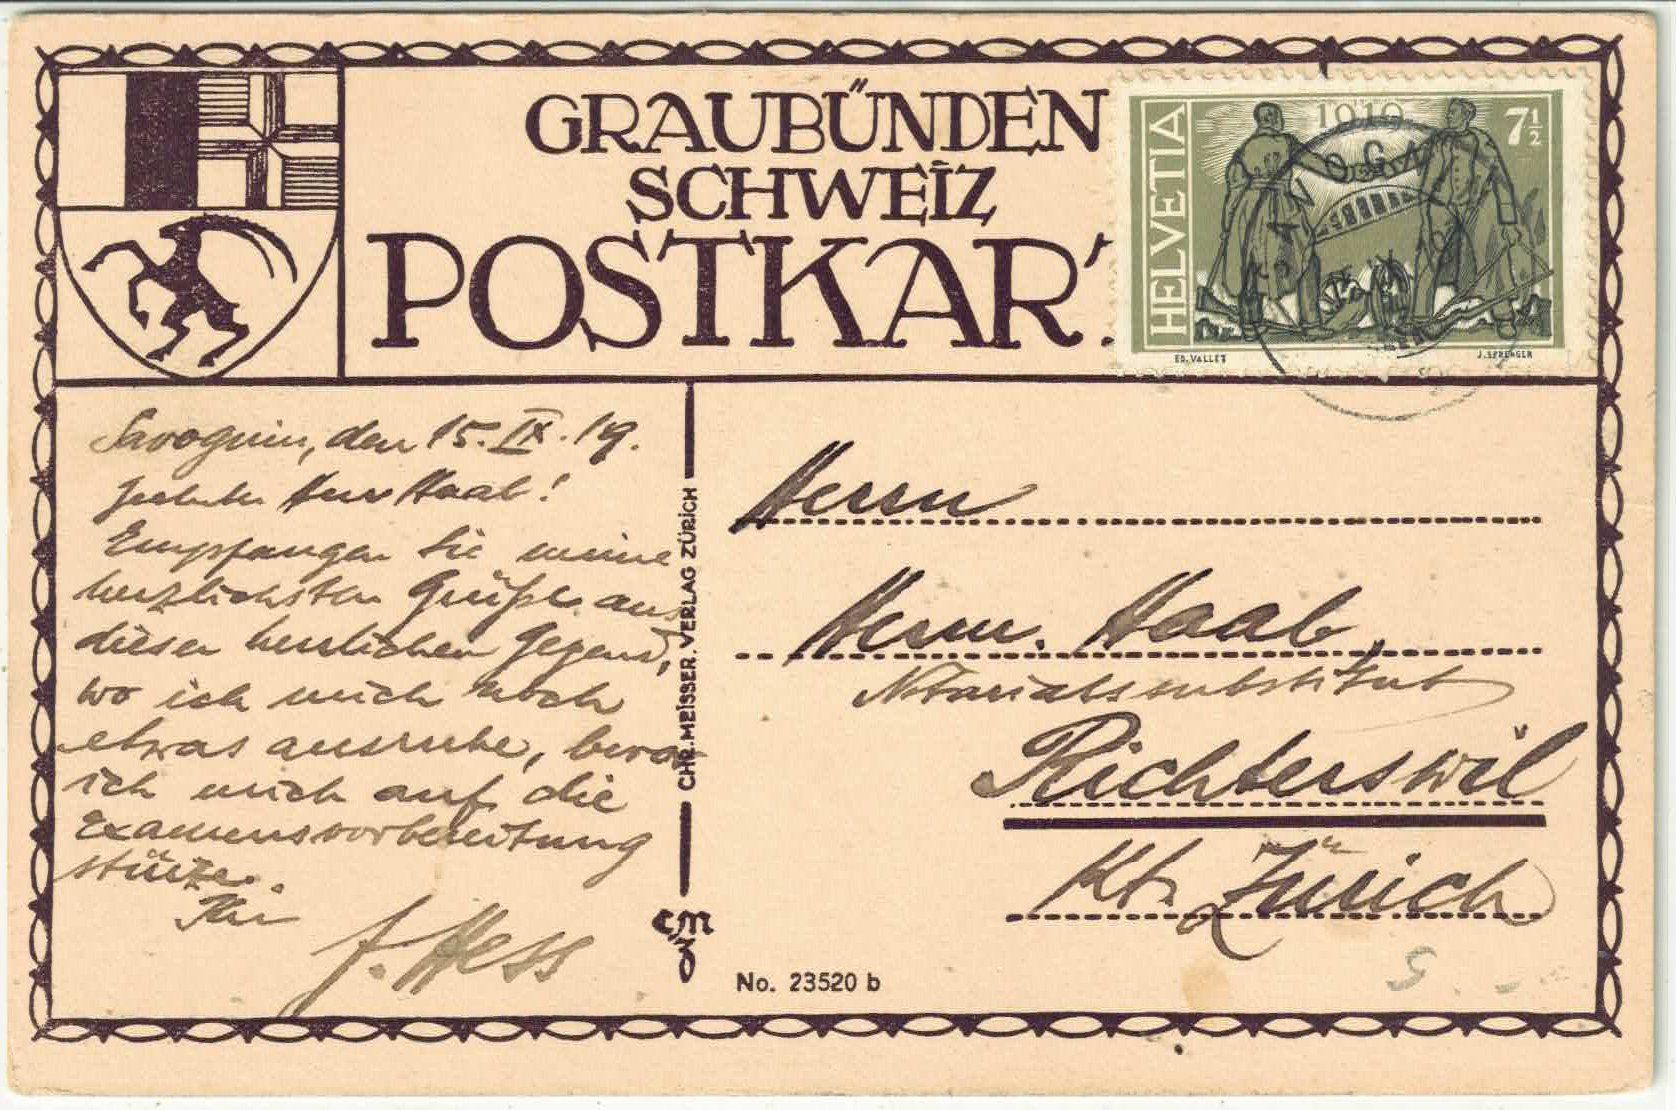 GRAUBÜNDEN
SCHWEIZ
POSTKAR
HELVETIA
1919
7½
ED. VALLET
J. SPRENGER
Savognin, den 15. IX. 19.
Geehrter Herr Haab!
Empfangen Sie meine
herzlichsten Grüße aus
dieser herrlichen Gegend,
wo ich mich noch
etwas ausruhe, bevor
ich mich auf die
Examensvorbereitung
stürze.
Ihr
J. Hess
CHR. MEISSER. VERLAG ZÜRICH
CM
No. 23520 b
Herrn
Herm. Haab,
Notariatssubstitut
Richterswil
Kt. Zürich